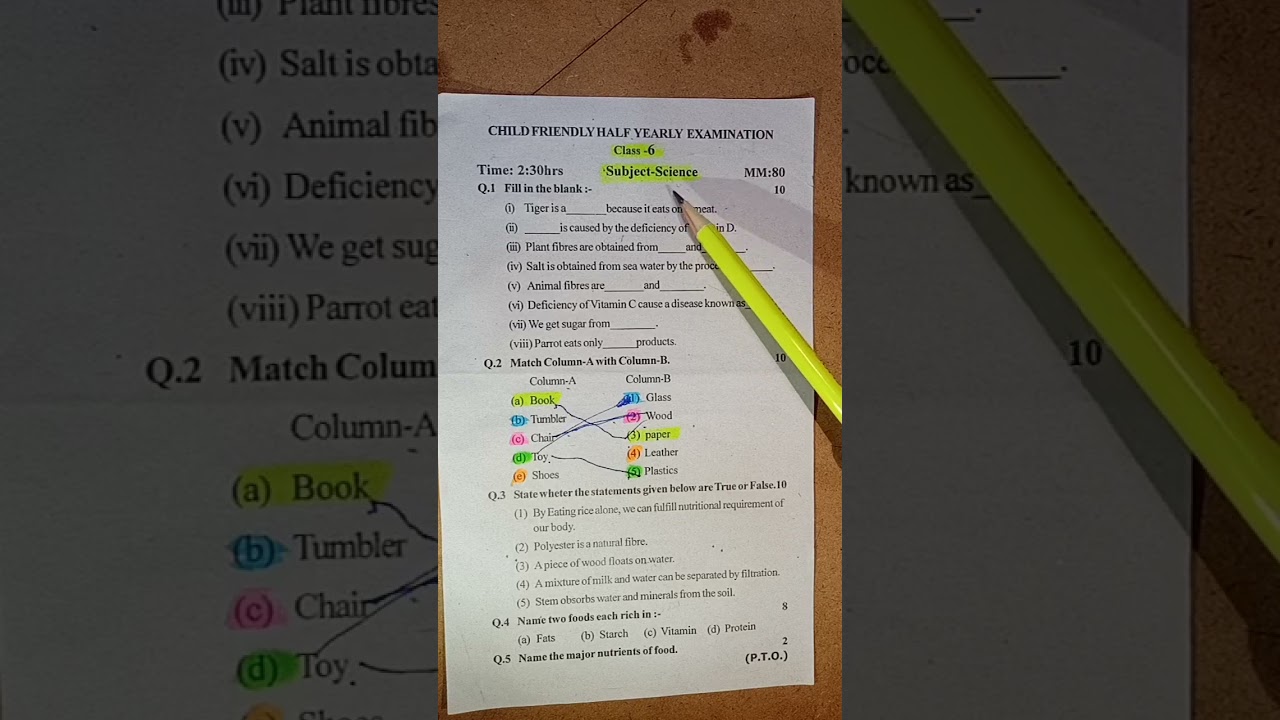 CHILD FRIENDLY HALF YEARLY EXAMINATION
Class -6
Time: 2:30hrs Subject-Science MM:80
Q.1 Fill in the blank :- 10
(i) Tiger is a_______ because it eats on meat.
(ii) ______is caused by the deficiency of in D.
(iii) Plant fibres are obtained from_____and_______.
(iv) Salt is obtained from sea water by the proce ____.
(v) Animal fibres are_______and________.
(vi) Deficiency of Vitamin C cause a disease known as_
(vii) We get sugar from________.
(viii) Parrot eats only______products.
Q.2 Match Column-A with Column-B. 10
Column-A Column-B
(a) Book (1) Glass
(b) Tumbler (2) Wood
(c) Chair (3) paper
(d) Toy (4) Leather
(e) Shoes (5) Plastics
Q.3 State wheter the statements given below are True or False.10
(1) By Eating rice alone, we can fulfill nutritional requirement of
our body.
(2) Polyester is a natural fibre.
(3) A piece of wood floats on water.
(4) A mixture of milk and water can be separated by filtration.
(5) Stem absorbs water and minerals from the soil.
Q.4 Name two foods each rich in :- 8
(a) Fats (b) Starch (c) Vitamin (d) Protein
Q.5 Name the major nutrients of food. 2
(P.T.O.)